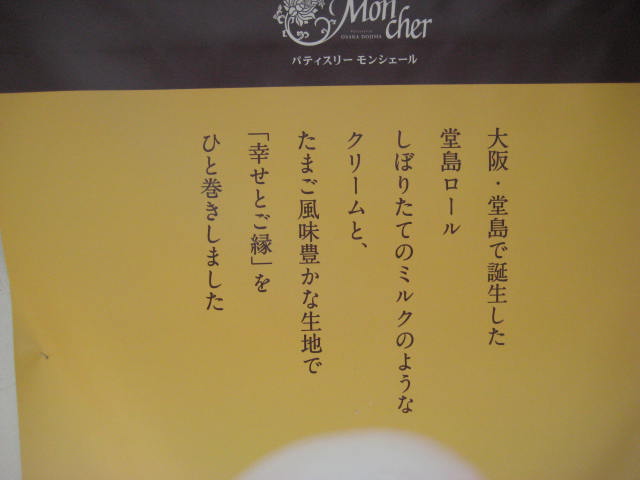 Mon
cher
OSAKA DOJIMA
パティスリー モンシェール
大阪・堂島で誕生した
堂島ロール
しぼりたてのミルクのような
クリームと、
たまご風味豊かな生地で
「幸せとご縁」を
ひと巻きしました